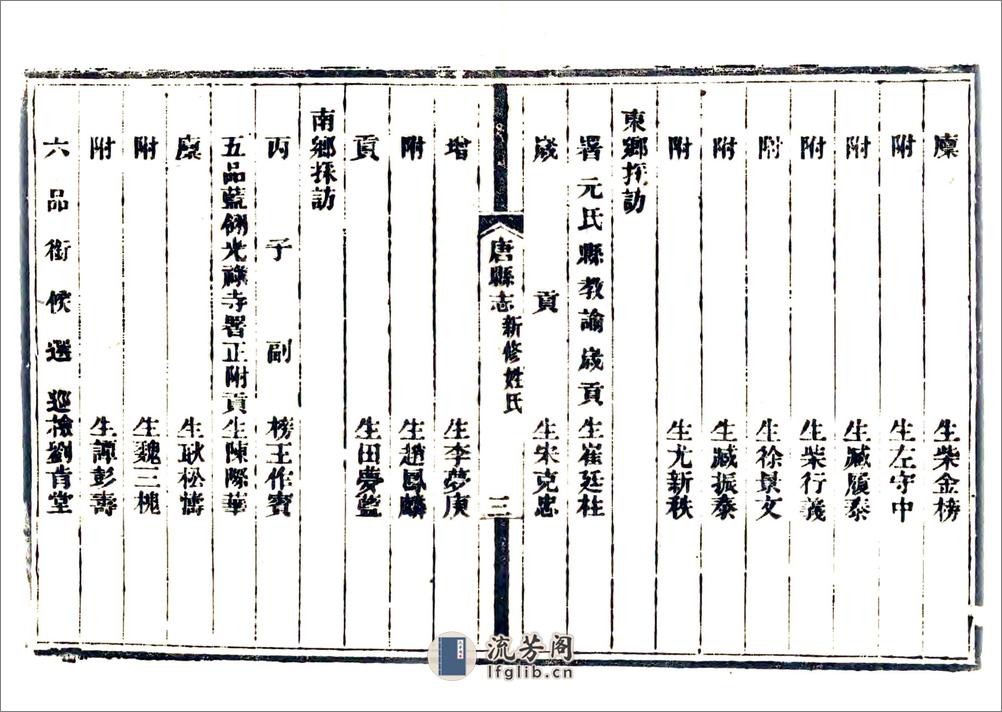 廩生柴金榜
附生左守中
附生臧履泰
附生柴行義
附生徐景文
附生臧振泰
附生尤新秩
東鄉採訪
署元氏縣教諭歲貢生崔廷柱
歲貢生宋克忠
唐縣志 新修姓氏 三
增生李夢庚
附生趙鳳麟
貢生田夢藍
南鄉採訪
丙子副榜王作賓
五品藍翎光祿寺署正附貢生陳際華
廩生耿松儕
附生魏三槐
附生譚彭壽
六品銜候選巡檢劉肯堂
流芳阁
lfglib.cn